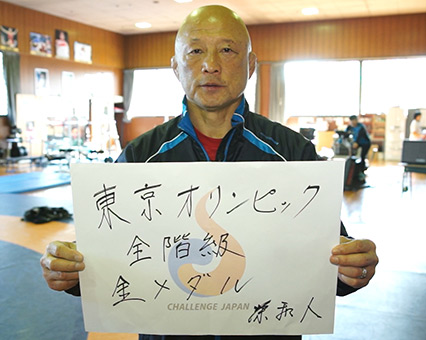 東京オリンピック
全階級
金メダル
CHALLENGE JAPAN